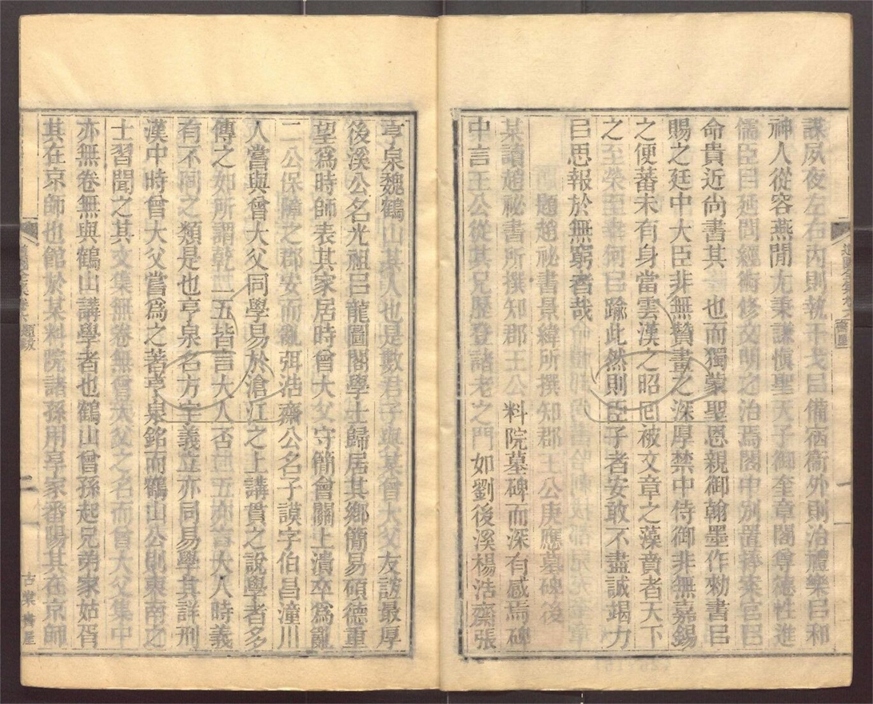 謀夙夜左右內則執干戈㠯備宿衞外則治禮樂㠯和
神人從容燕閒尢秉謙慎聖天子御奎章閣尊德性進
儒臣㠯延問經術修文明之治焉閣中別置捧案官㠯
命貴近尚書其一也而獨蒙聖恩親御翰墨作勑書㠯
賜之廷中大臣非無贊畫之深厚禁中侍御非無嘉錫
之便蕃未有身當雲漢之昭回被文章之藻賁者天下
之至榮至幸何㠯踰此然則臣子者安敢不盡誠竭力
㠯思報於無窮者哉
題趙祕書景緯所撰知郡王公庚應墓碑後
某讀趙祕書所撰知郡王公料院墓碑而深有感焉碑
中言王公從其兄歷登諸老之門如劉後溪楊浩齋張
亨泉魏鶴山其人也是數君子與某曾大父友誼最厚
後溪公名光祖㠯龍圖閣學士歸居其鄉簡易碩德重
望爲時師表其家居時曾大父守簡會關上潰卒爲亂
二公保障之郡安而亂弭浩齋公名子謨字伯昌潼川
人嘗與曾大父同學易於滄江之上講貫之說學者多
傳之如所謂乾二五皆言大人否二五亦言大人時義
有不同之類是也亨泉名方字義立亦同易學其詳刑
漢中時曾大父嘗爲之著亨泉銘而鶴山公則東南之
士習聞之其文集無卷無曾大父之名而曾大父集中
亦無卷無與鶴山講學者也鶴山曾孫起兄弟家姑胥
其在京師也館於某料院諸孫用亨家番陽其在京師
古棠書屋